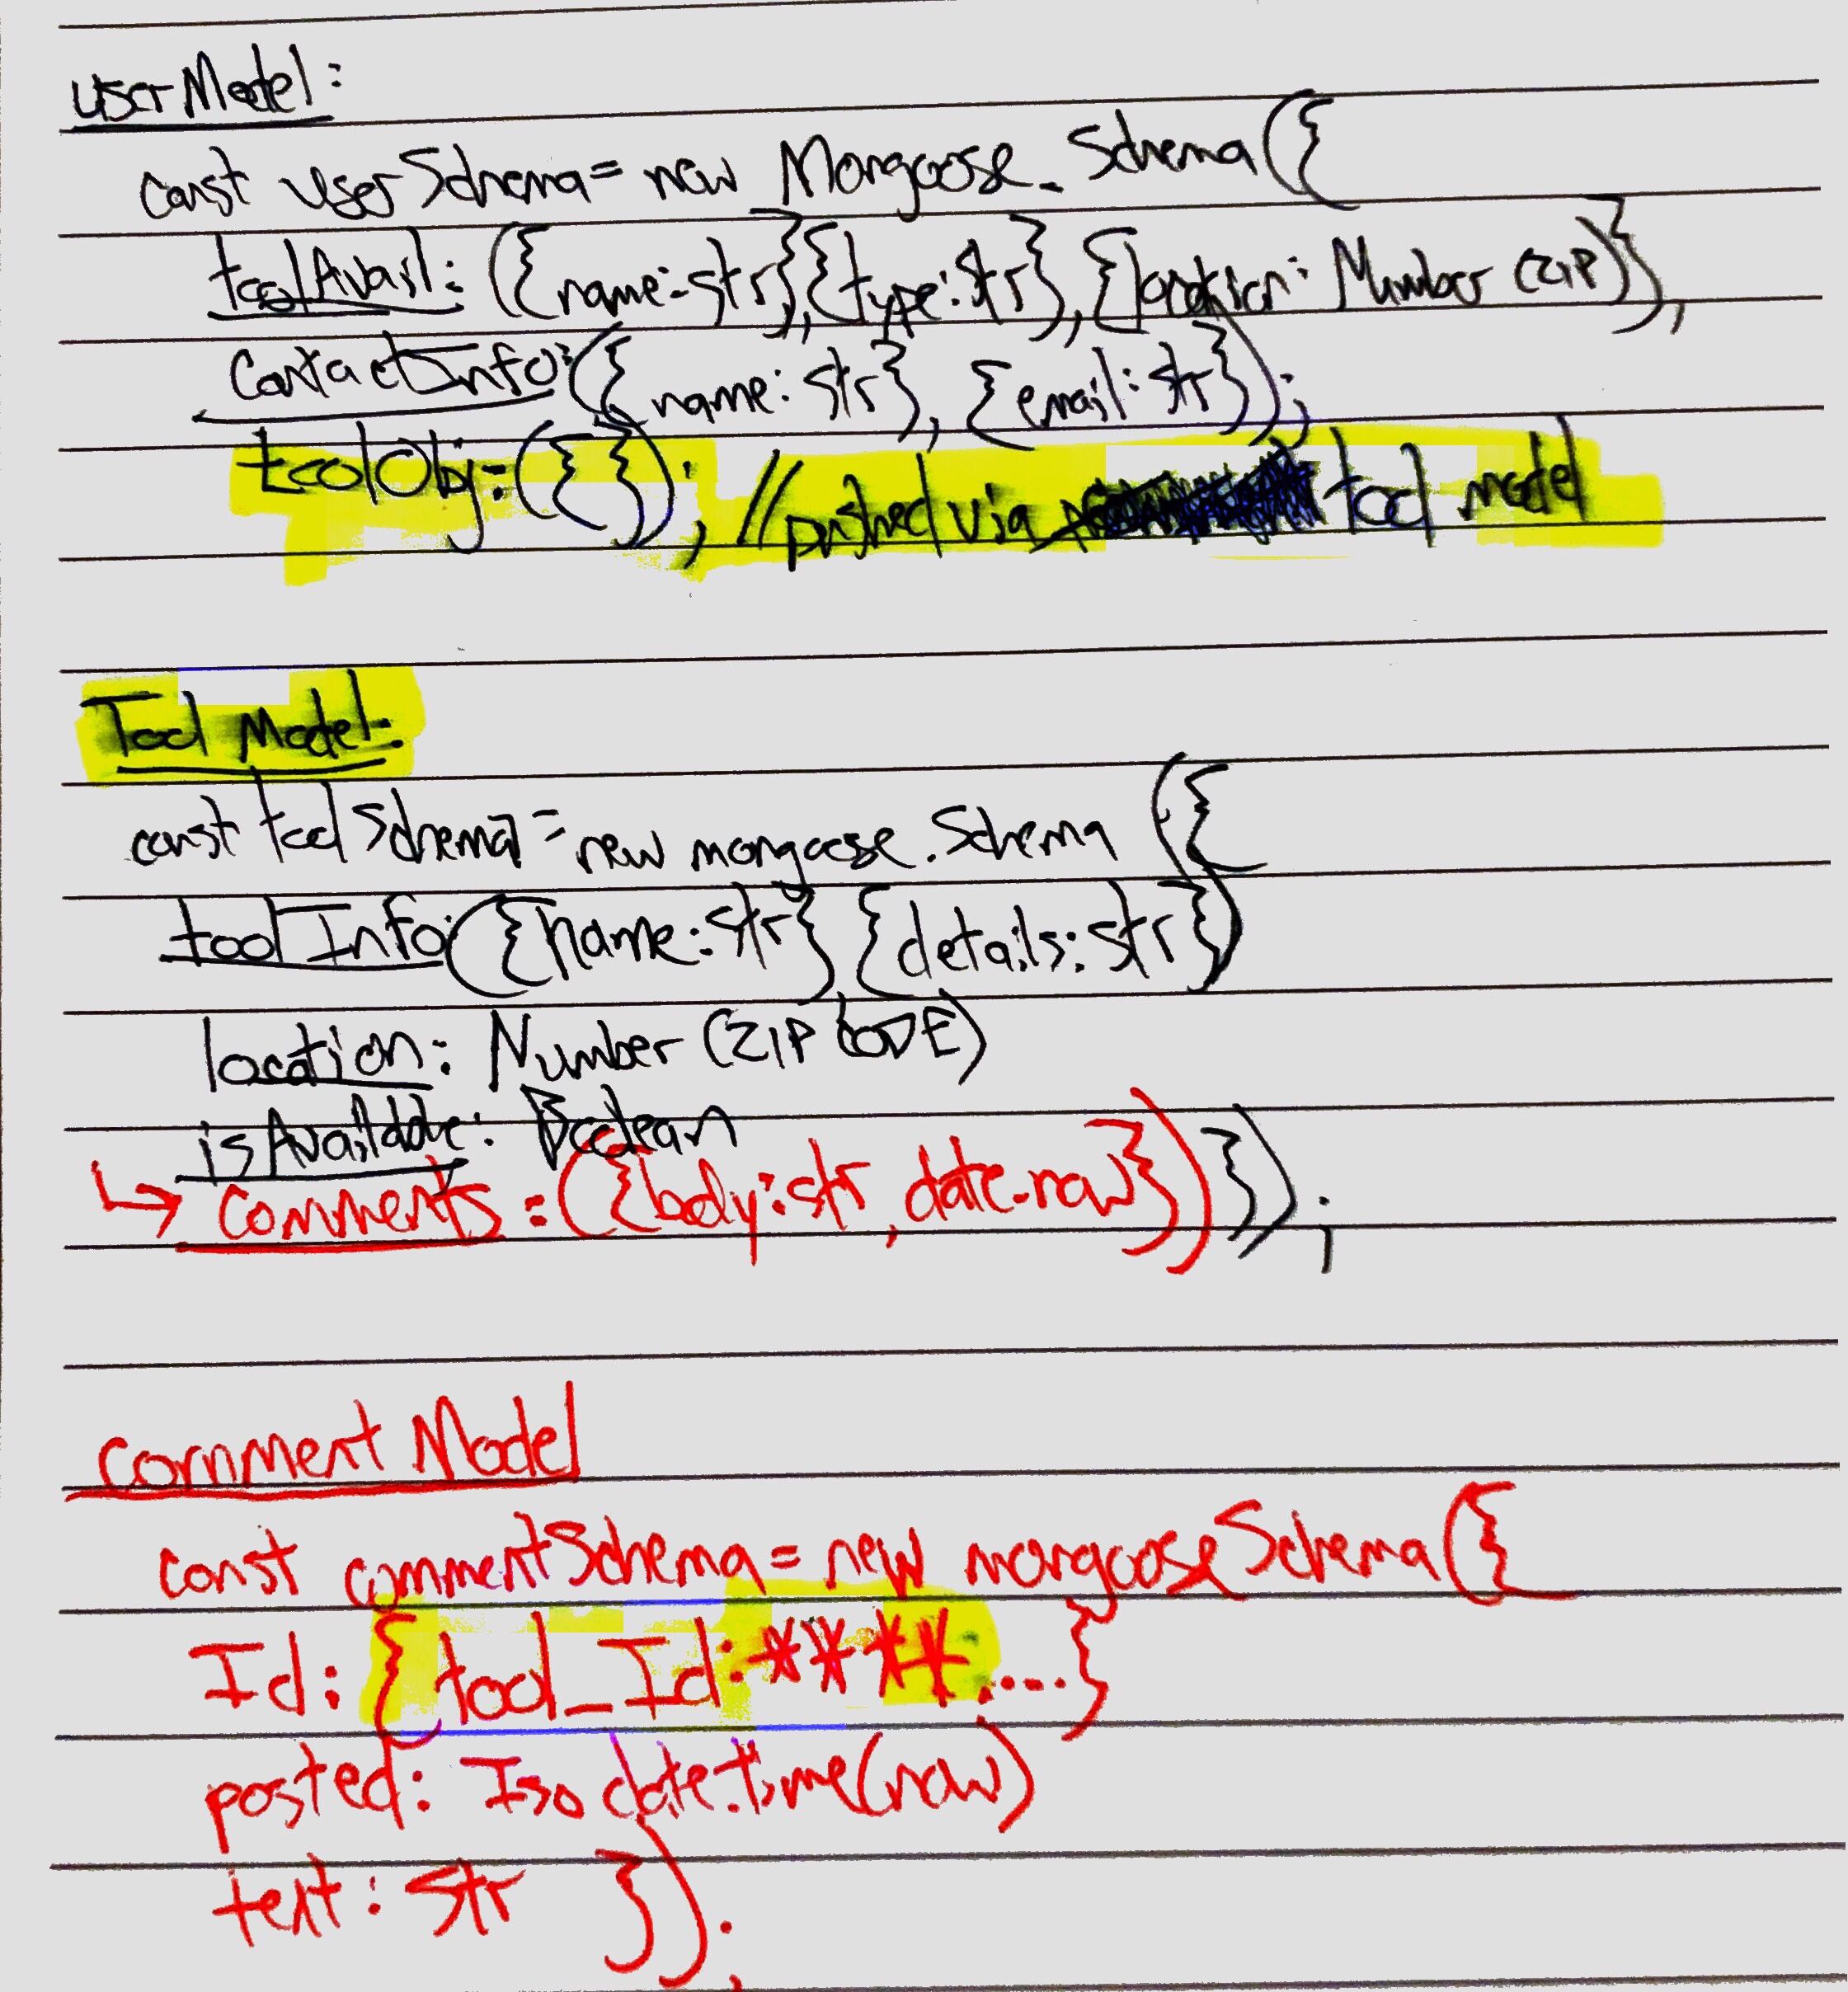 userModel:
const userSchema = new Mongoose. Schema({
toolAvail: ({name: str},{type: str},{location: Number (ZIP)}),
ContactInfo: ({name: str}, {email: str});
toolObj: ({}); //pushed via tool model
Tool Model:
const toolSchema = new mongoose.Schema ({
toolInfo: ({name: str},{details: str})
location: Number (ZIP CODE)
isAvailable: Boolean
↳ Comments: ({body: str, date.now})});
comment Model
const commentSchema = new mongooseSchema({
Id: {tool_Id: ****....}
posted: Iso date.time(now)
text: str });